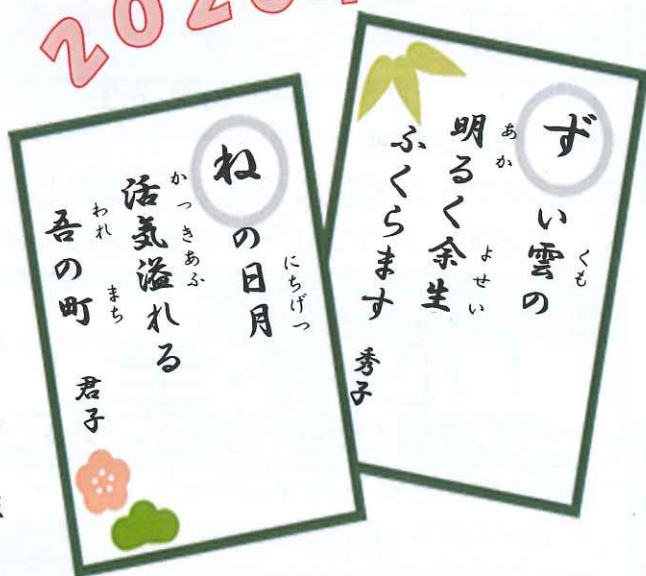 2020
ずい雲の
くも
明るく余生
あか よせい
ふくらます
秀子
ねの日月
にちげつ
活気溢れる
かっきあふ
吾の町
われ まち
君子